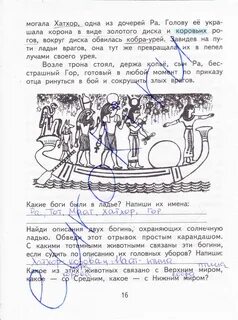 могала Хатхор, одна из дочерей Ра. Голову её укра-
шала корона в виде золотого диска и коровьих ро-
гов, вокруг диска обвилась кобра-урей. Завидев на пу-
ти ладьи врагов, она тут же превращала их в пепел
лучами своего урея.
Возле трона стоял, держа копьё, сын Ра, бес-
страшный Гор, готовый в любой момент по приказу
отца ринуться в бой и сокрушить злых врагов.
Какие боги были в ладье? Напиши их имена:
Ра, Тот, Маат, Хатхор, Гор
Найди описания двух богинь, охраняющих солнечную
ладью. Обведи этот отрывок простым карандашом.
С какими тотемными животными связаны эти богини,
если судить по описанию их головных уборов? Напиши:
Хатхор Маат птица
Какое из этих животных связано с Верхним миром,
какое — со Средним, какое — с Нижним миром?
16